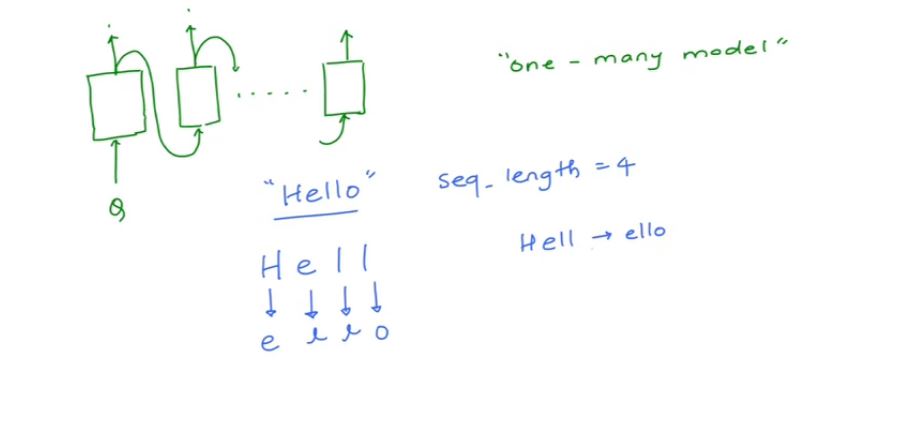 "one - many model"
Q
"Hello"
seq_ length = 4
Hell → ello
H e l l
↓ ↓ ↓ ↓
e l l o